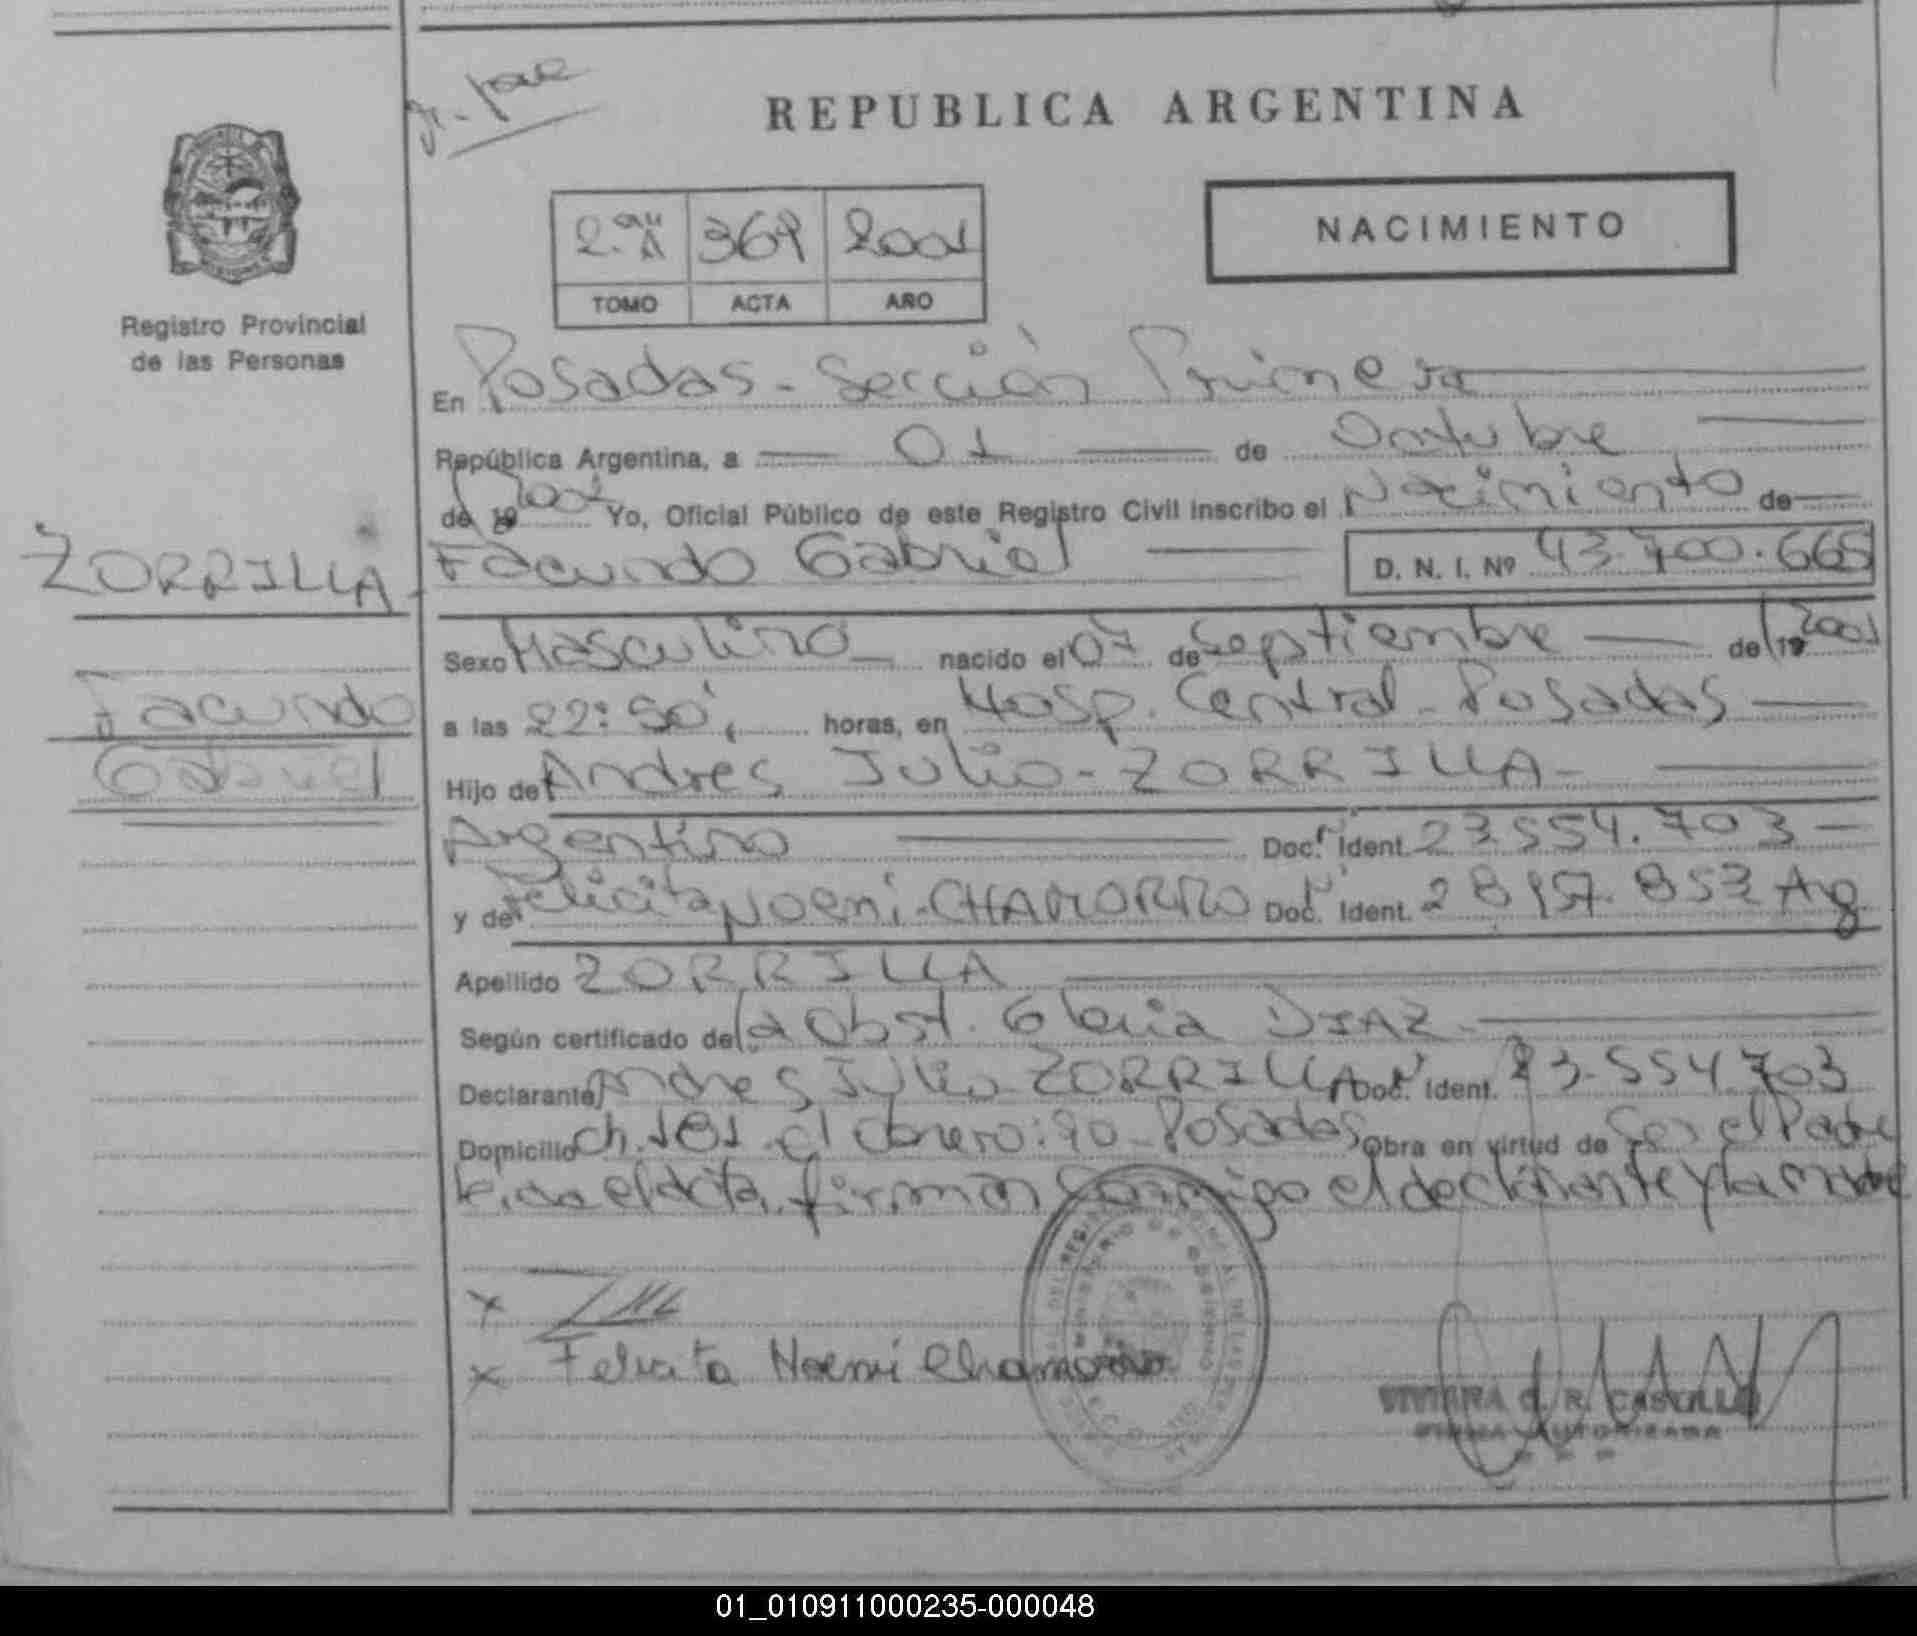 REPUBLICA ARGENTINA
NACIMIENTO
2.ª "A" 369 2001
TOMO ACTA AÑO
Registro Provincial
de las Personas
ZORRILLA
Facundo
Gabriel
En Posadas - Sección Primera
República Argentina, a 01 de Octubre
de 19 2001 Yo, Oficial Público de este Registro Civil inscribo el Nacimiento de
Facundo Gabriel D. N. I. Nº 43.700.665
Sexo Masculino nacido el 07 de Septiembre de 19 2001
a las 22:50', horas, en Hosp. Central - Posadas
Hijo de Andrés Julio - ZORRILLA -
Argentino Doc. Ident. 23.554.703
y de Felicita Noemi - CHAMORRO Doc. Ident. 28.157.853 Arg
Apellido ZORRILLA
Según certificado de la Obst. Gloria DIAZ -
Declarante Andres Julio ZORRILLA Doc. Ident. 23.554.703
Domicilio Ch. 181 - Posadas Obra en virtud de Ser el Padre
Leida el acta, firman conmigo el declarante y la madre
x
x Felicita Noemi Chamorro
VIVIANA C. R. CASTILLO
FIRMA AUTORIZADA
01_010911000235-000048